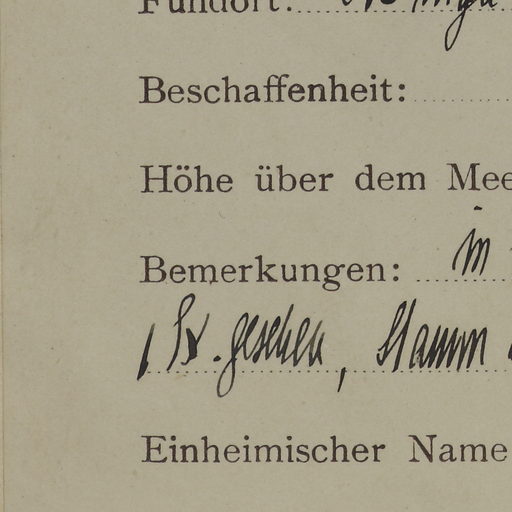 Fundort:
Beschaffenheit:
Höhe über dem Mee
Bemerkungen: in
gesehen, Stamm
Einheimischer Name